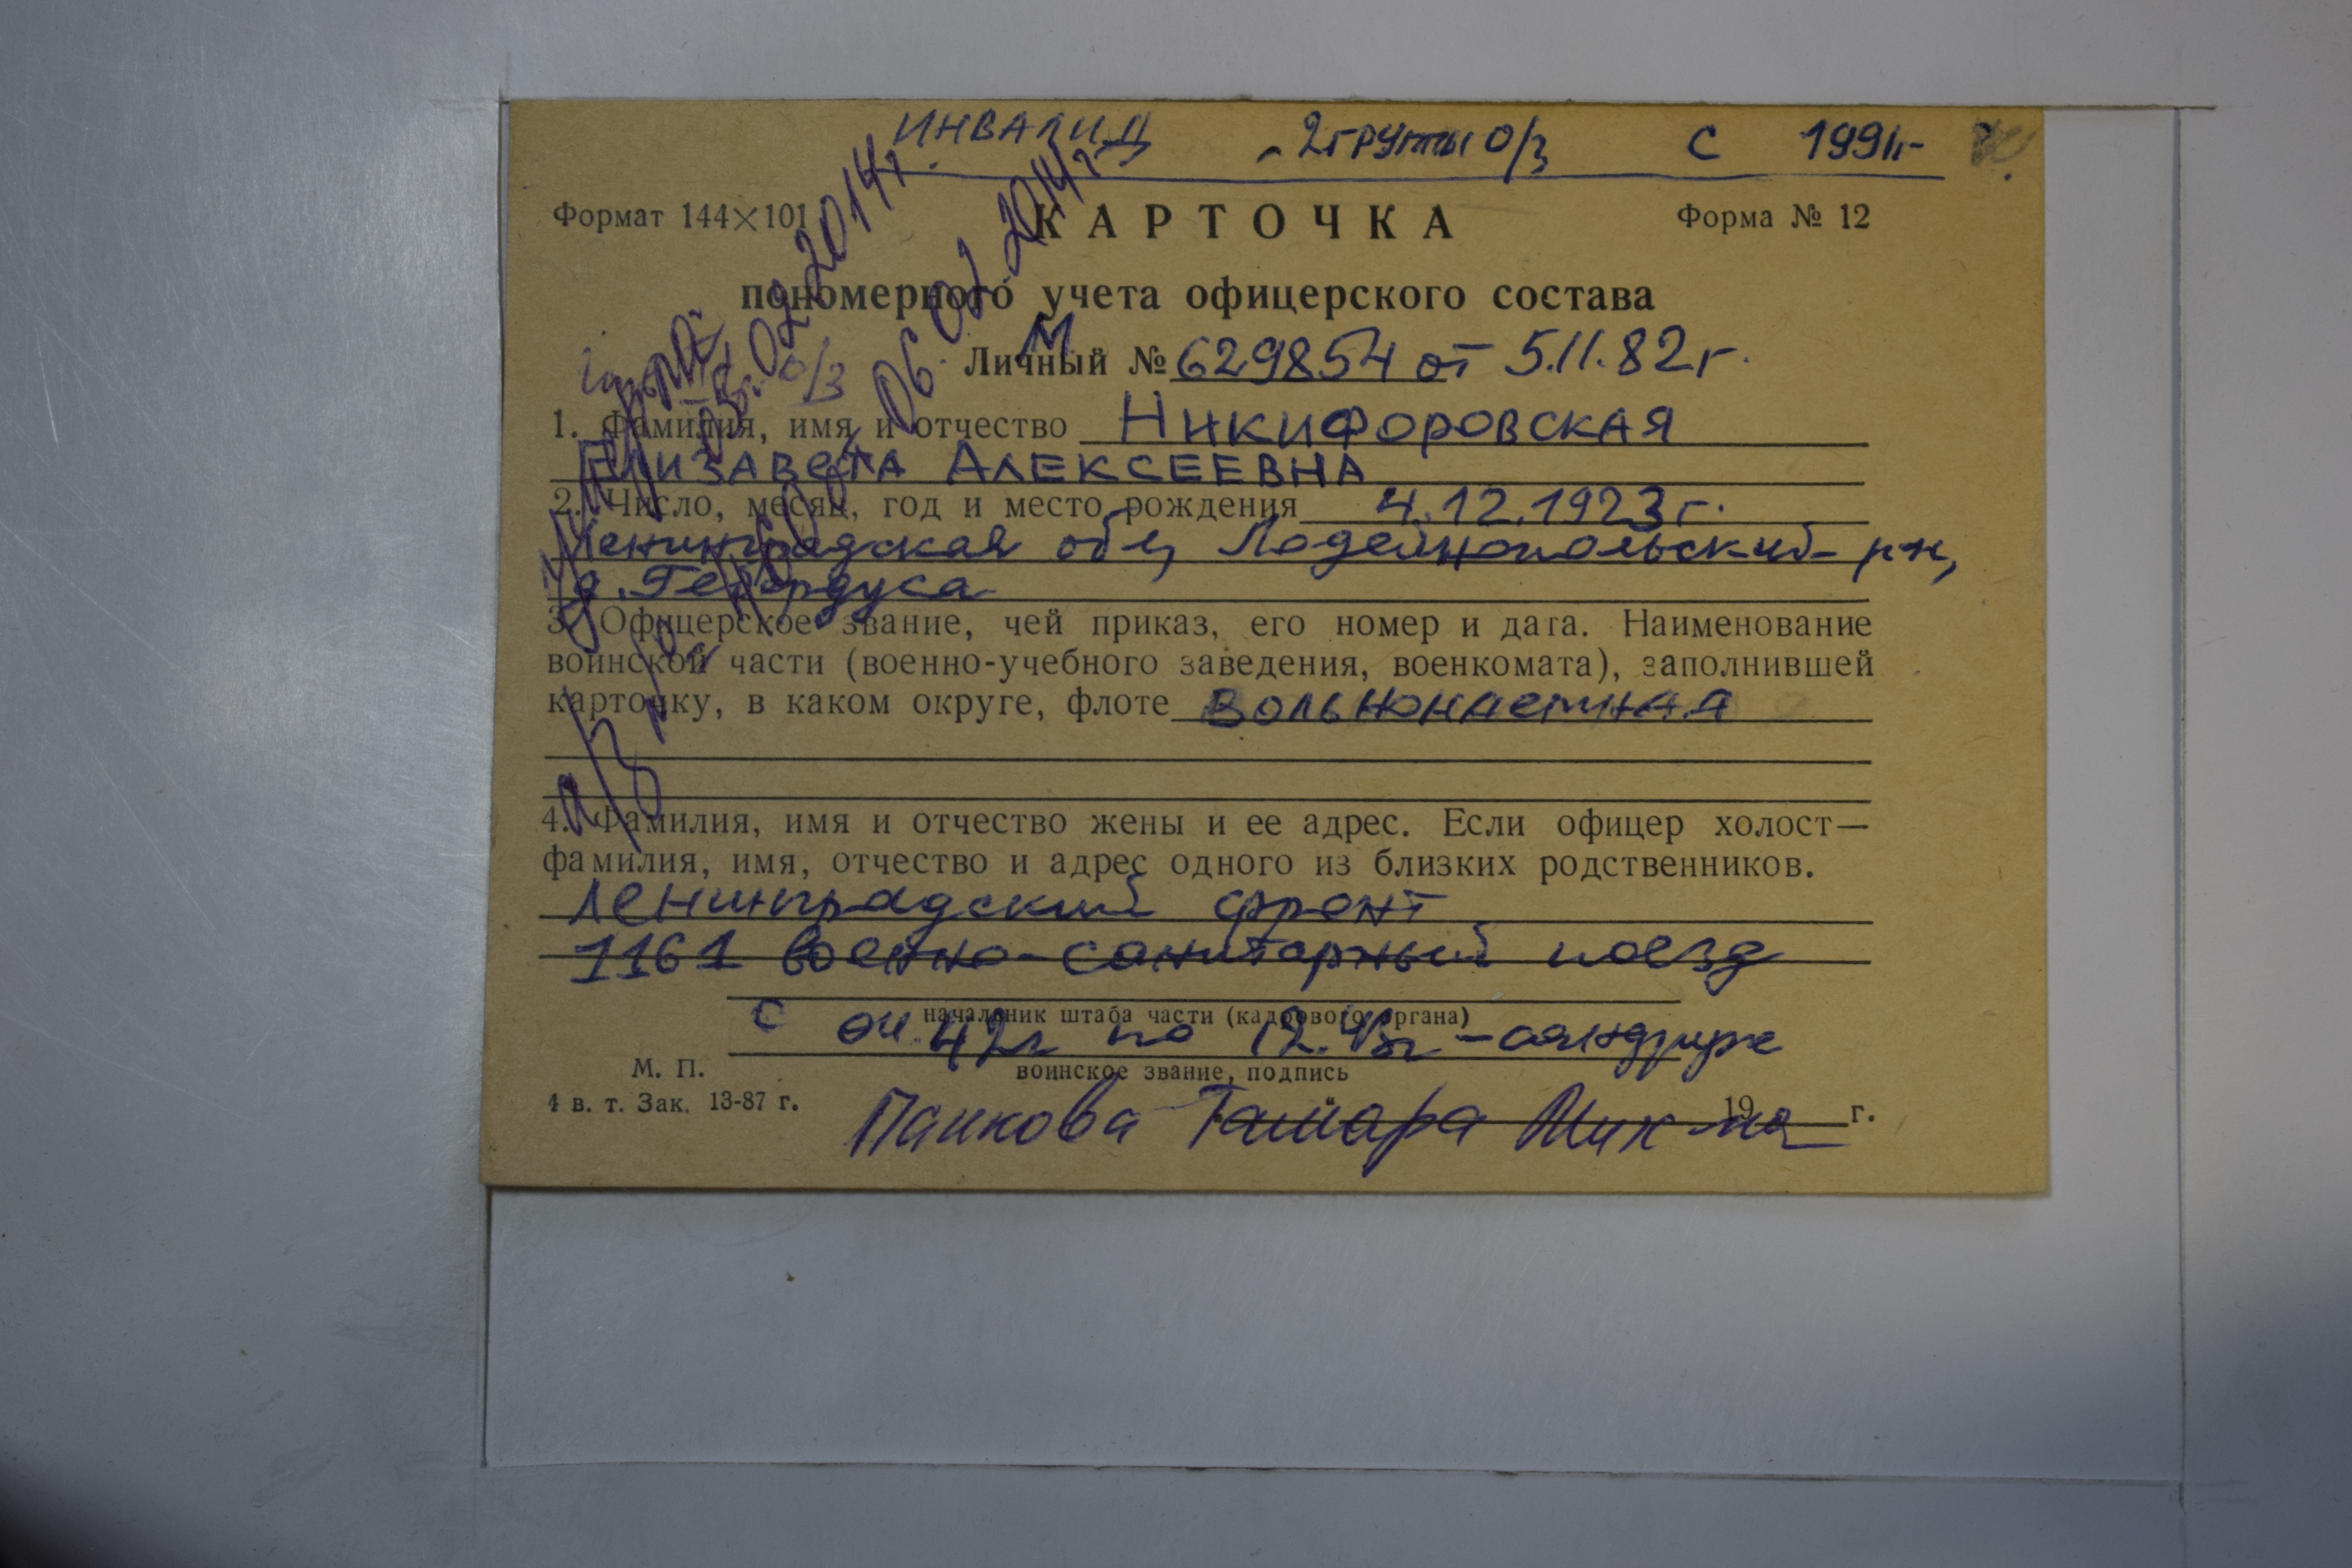 ИНВАЛИД - 2 группы о/з с 1991г-
Формат 144×101 КАРТОЧКА Форма № 12
пономерного учета офицерского состава
Личный № 629854 от 5.11.82г.
1. Фамилия, имя и отчество Никифоровская
Елизавета Алексеевна
2. Число, месяц, год и место рождения 4.12.1923г.
Ленинградская обл, Лодейнопольский р-н,
д.
3. Офицерское звание, чей приказ, его номер и дата. Наименование
воинской части (военно-учебного заведения, военкомата), заполнившей
карточку, в каком округе, флоте вольнонаемная
4. Фамилия, имя и отчество жены и ее адрес. Если офицер холост—
фамилия, имя, отчество и адрес одного из близких родственников.
Ленинградский фронт
1161 военно-санитарный поезд
начальник штаба части (кадрового органа)
с 04.42г по 12.43г -
М. П. воинское звание, подпись
4 в. т. Зак. 13-87 г. 19 г.
Панкова Тамара Мих-на
умерла 03.02.2014г
06.02.2014г